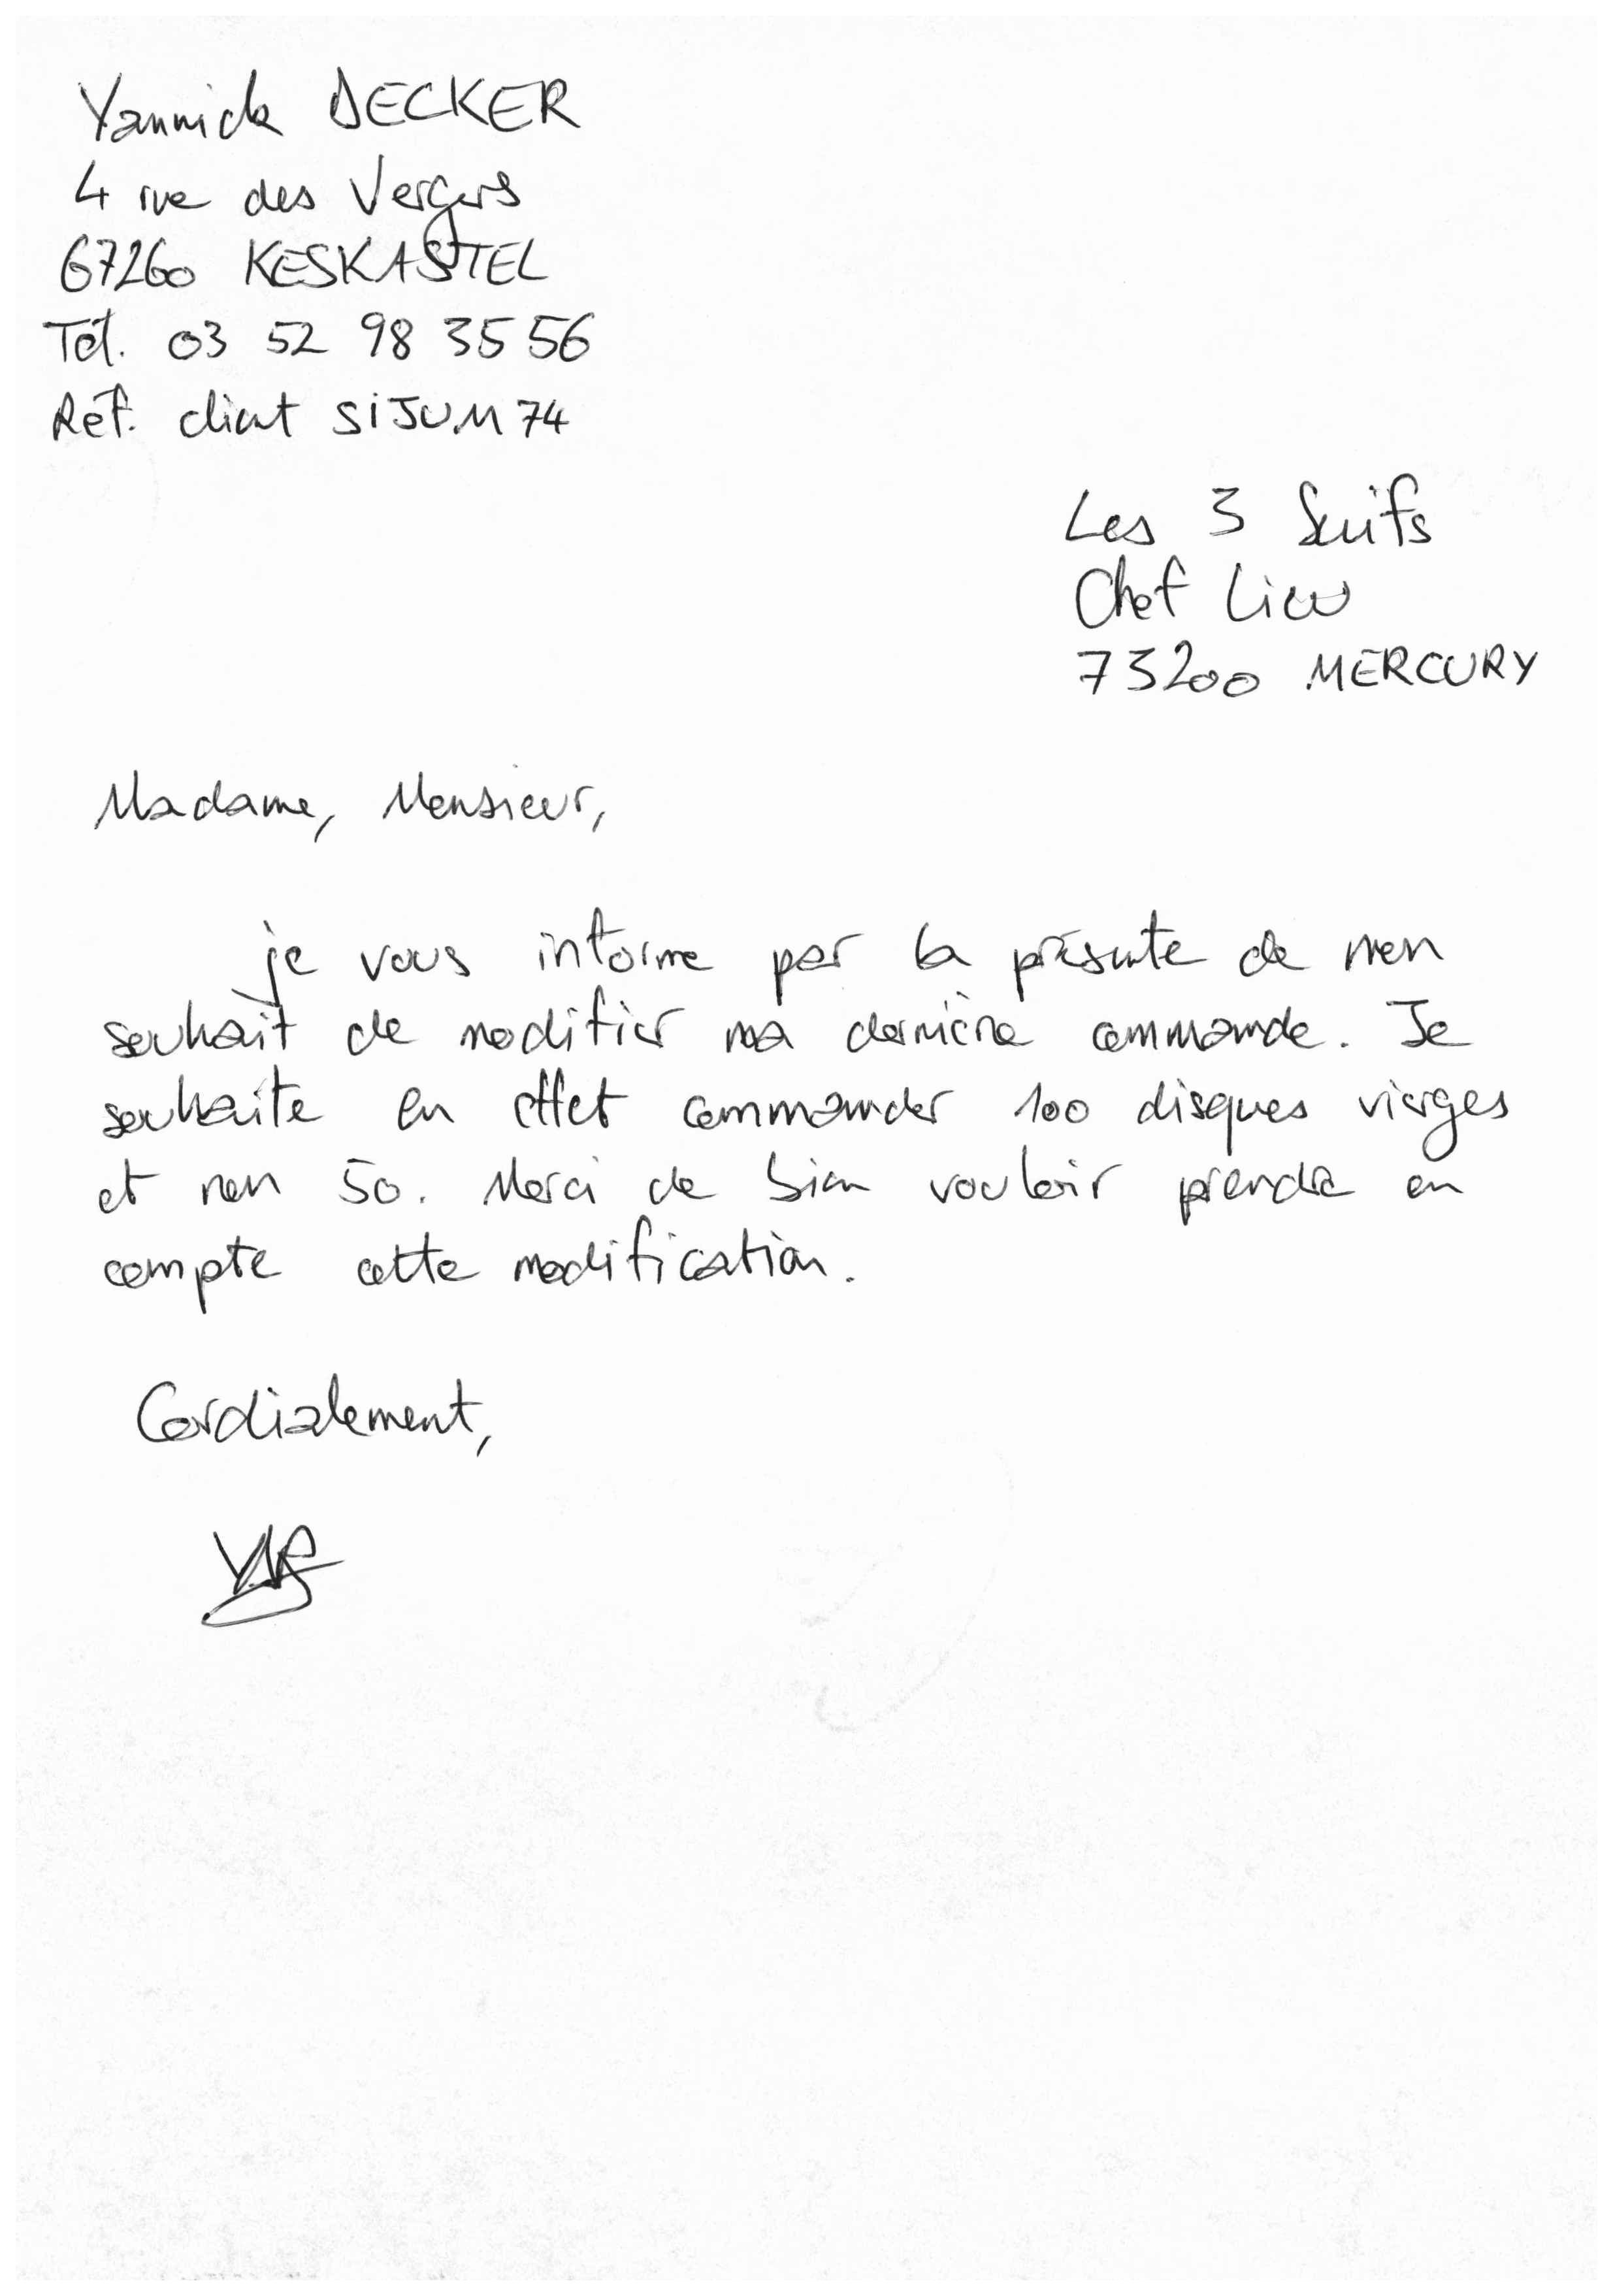 Yannick DECKER
4 rue des Vergers
67260 KESKASTEL
Tél. 03 52 98 35 56
Réf. client SIJUM74
Les 3 Suifs
Chef Lieu
73200 MERCURY
Madame, Monsieur,
je vous informe par la présente de mon
souhait de modifier ma dernière commande. Je
souhaite en effet commander 100 disques vierges
et non 50. Merci de bien vouloir prendre en
compte cette modification.
Cordialement,